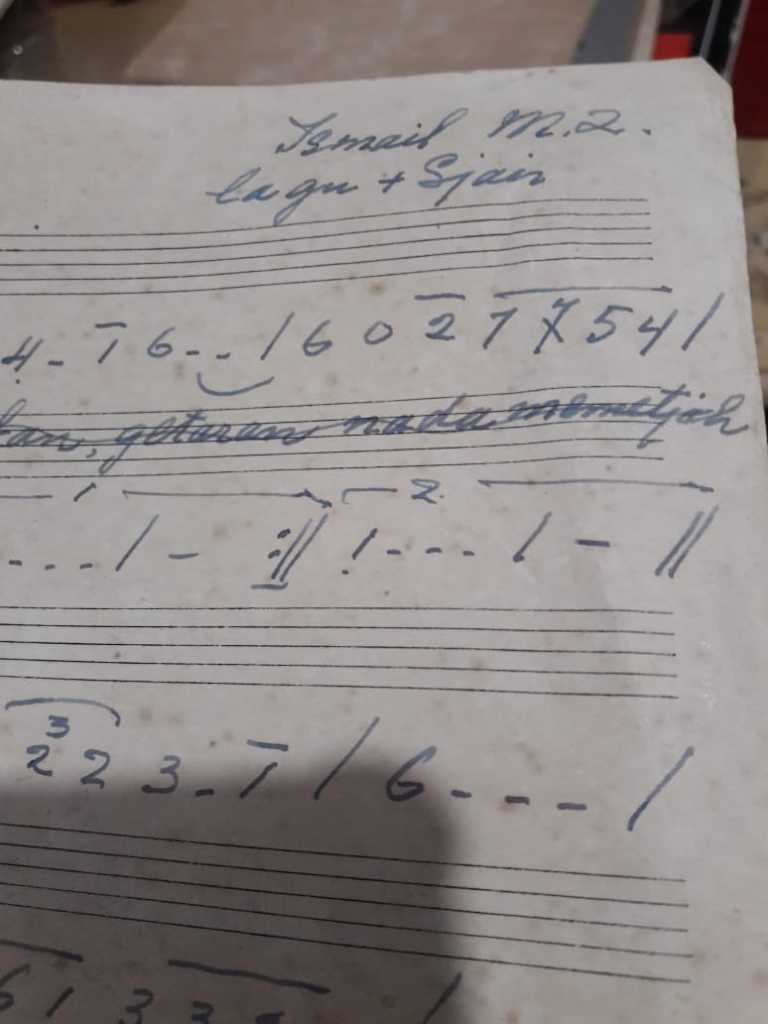 Ismail M.Z.
lagu + Sjair
4. 1 6 . . / 6 0 2 1 7 5 4 /
kan, getaran nada memetjah
1 2.
. . . . / - :|| 1 . . . . / - ||
3
2 2 3 . 1 / 6 . . . /
6 1 3 3 /